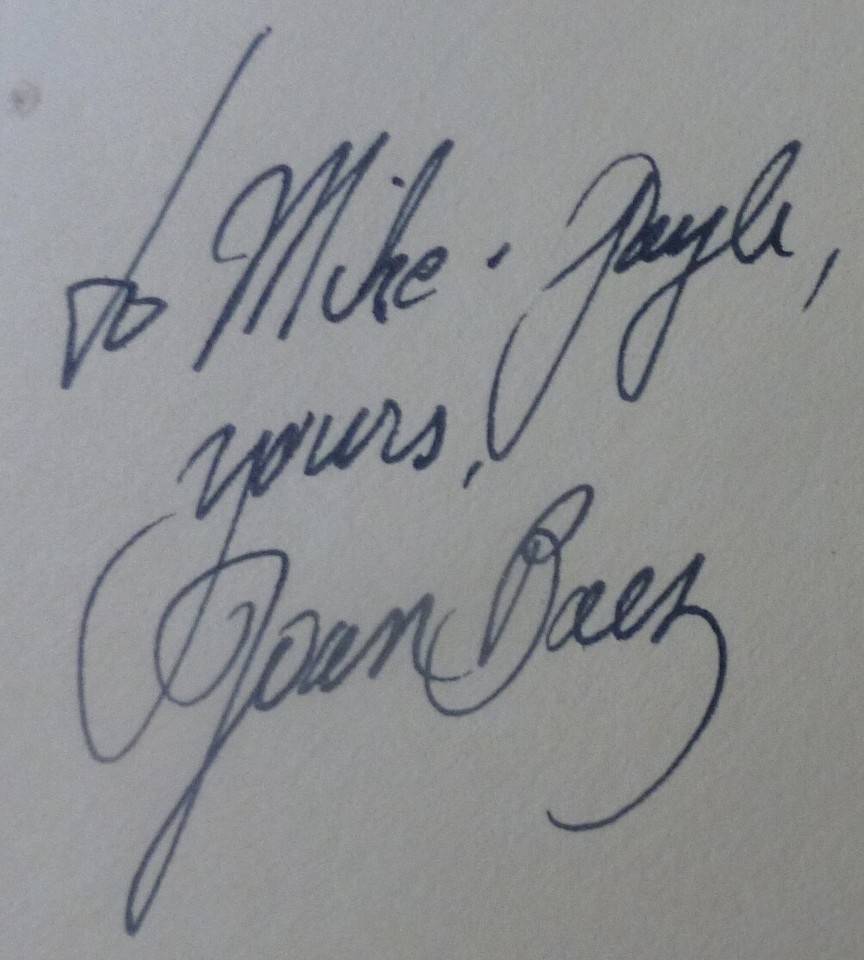 To Mike · Gayle,
yours,
Joan Baez